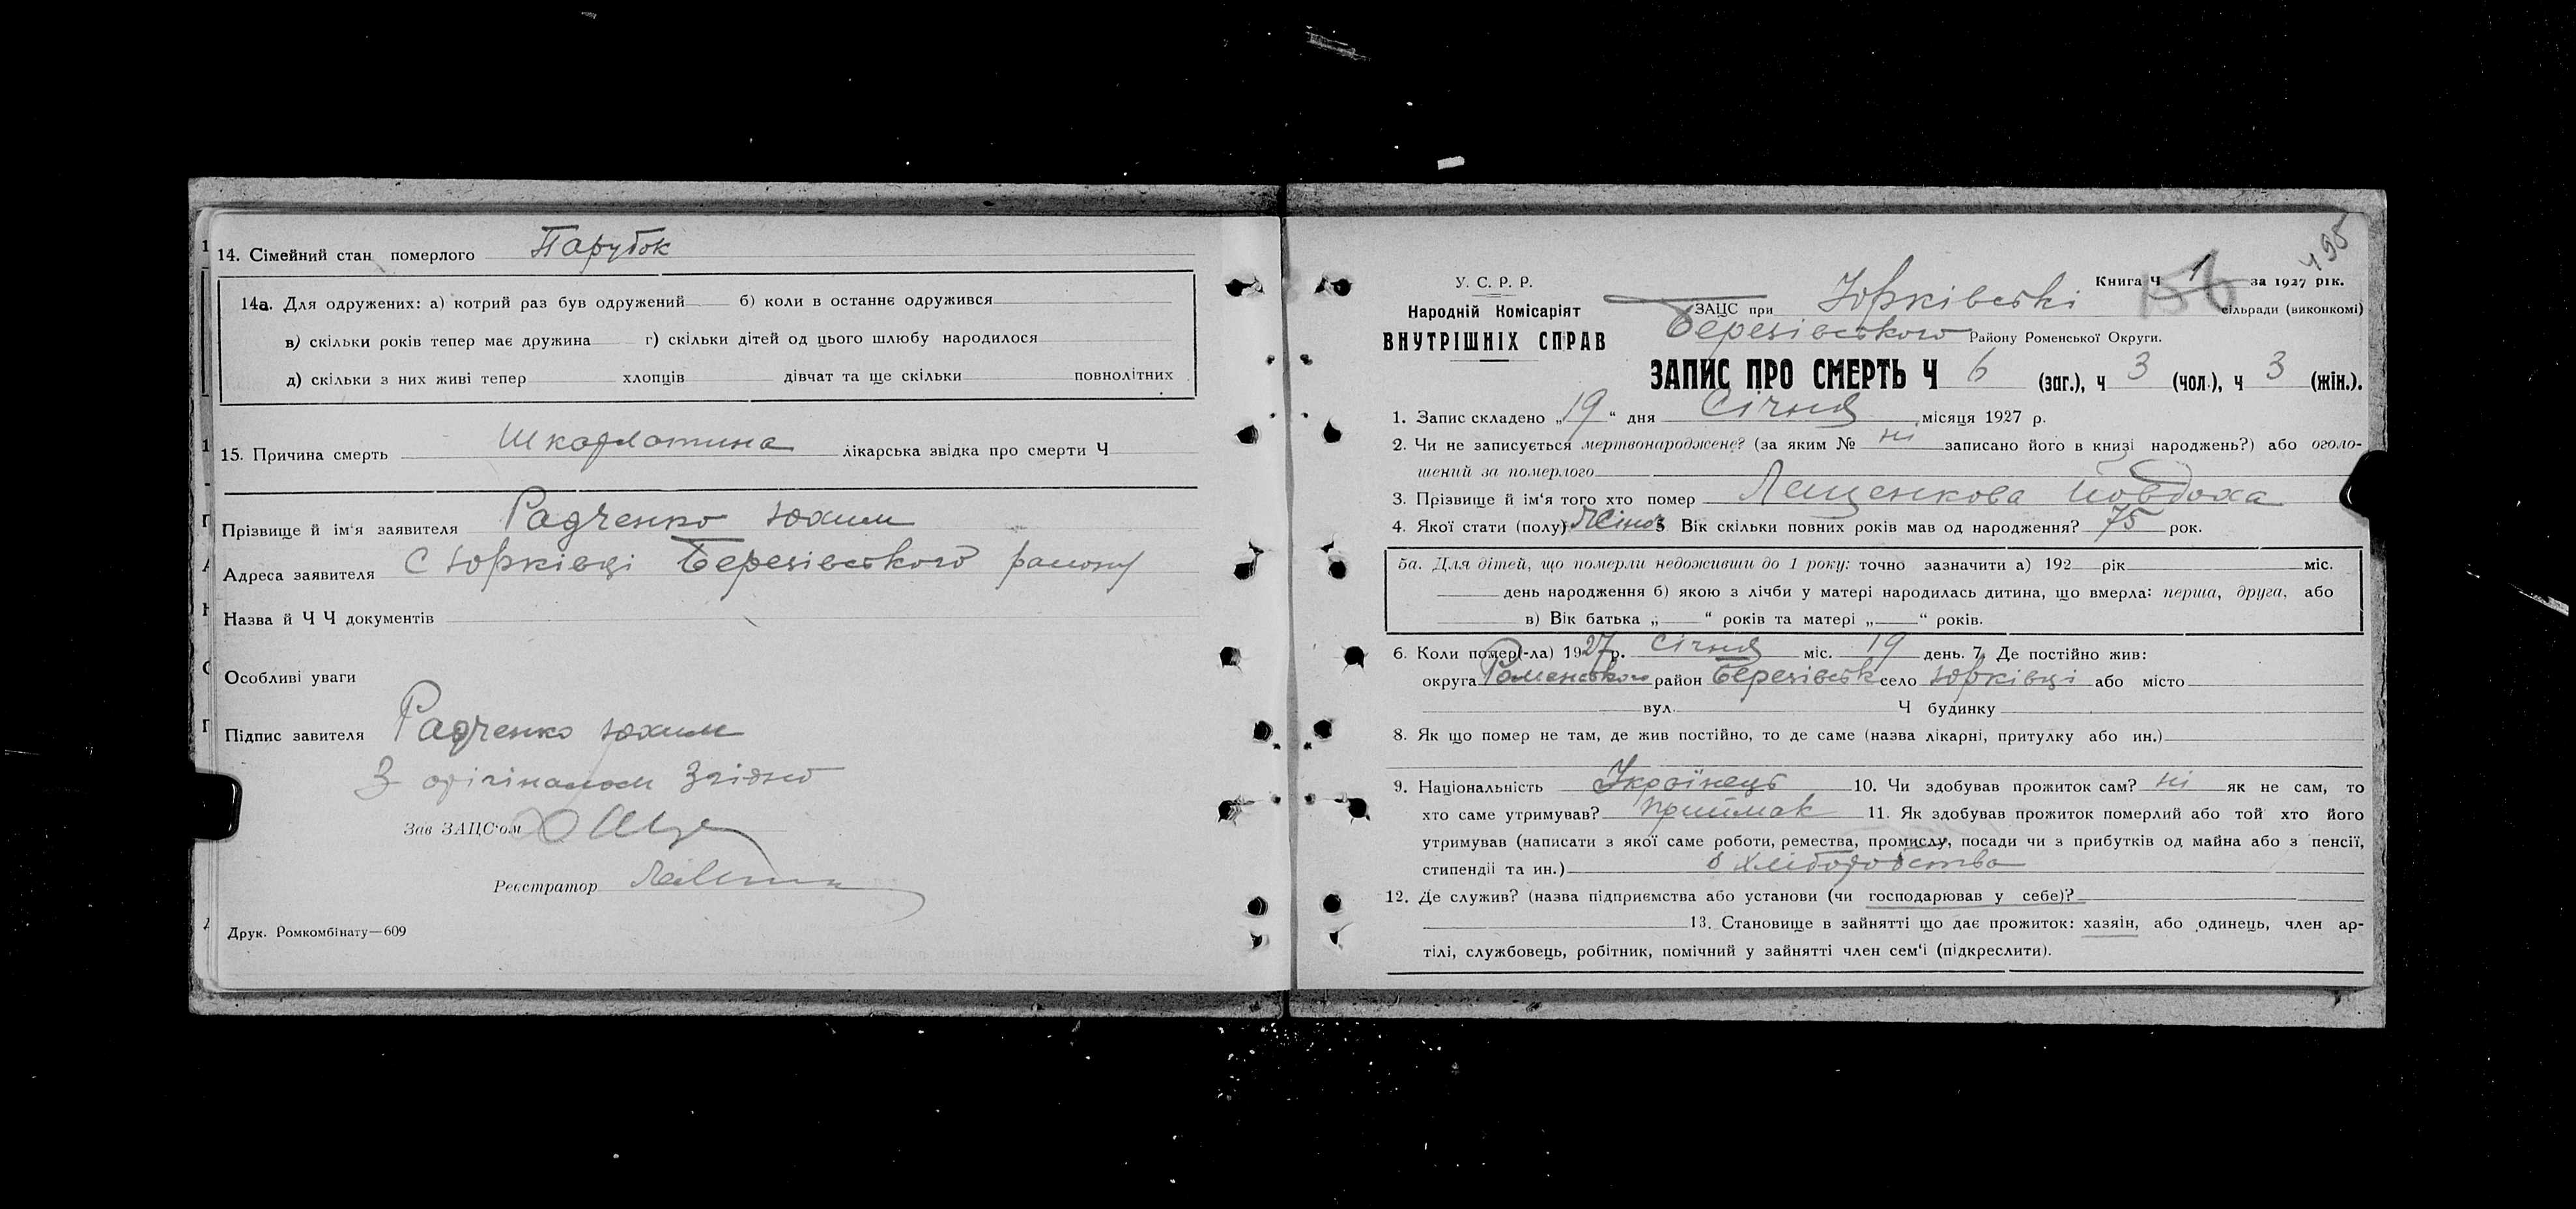 14. Сімейний стан померлого Парубок
14а. Для одружених: а) котрий раз був одружений б) коли в останнє одружився
в) скільки років тепер має дружина г) скільки дітей од цього шлюбу народилося
д) скільки з них живі тепер хлопців дівчат та ще скільки повнолітних
15. Причина смерть Шкарлатина лікарська звідка про смерти Ч
Прізвище й ім'я заявителя Радченко Юхим
Адреса заявителя С Юрківці Березівського району
Назва й Ч Ч документів
Особливі уваги
Підпис завителя Радченко Юхим
З орігіналом Згідно
Зав ЗАЦС'ом
Реєстратор
Друк. Ромкомбінату—609
498
У. С. Р. Р.
Народній Комісаріят
ВНУТРІШНІХ СПРАВ
Книга Ч 1 156 за 1927 рік.
ЗАЦС при Юрківські сільради (виконкомі)
Березівського Району Роменської Округи.
ЗАПИС ПРО СМЕРТЬ Ч 6 (заг.), ч 3 (чол.), ч 3 (жін.).
1. Запис складено „19“ дня Січня місяця 1927 р.
2. Чи не записується мертвонароджене? (за яким № ні записано його в книзі народжень?) або оголо-
шений за померлого
3. Прізвище й ім'я того хто помер Лещенкова Йовдоха
4. Якої стати (полу) Жіноч 5 Вік скільки повних років мав од народження? 75 рок.
5а. Для дітей, що померли недоживши до 1 року: точно зазначити а) 192 рік міс.
день народження б) якою з лічби у матері народилась дитина, що вмерла: перша, друга, або
в) Вік батька „ “ років та матері „ “ років.
6. Коли помер(-ла) 1927 р. Січня міс. 19 день. 7. Де постійно жив:
округа Роменського район Березівськ село Юрківці або місто
вул. Ч будинку
8. Як що помер не там, де жив постійно, то де саме (назва лікарні, притулку або ин.)
9. Національність Українець 10. Чи здобував прожиток сам? ні як не сам, то
хто саме утримував? приймак 11. Як здобував прожиток померлий або той хто його
утримував (написати з якої саме роботи, ремества, промислу, посади чи з прибутків од майна або з пенсії,
стипендії та ин.) з хліборобства
12. Де служив? (назва підприємства або установи (чи господарював у себе)?
13. Становище в зайнятті що дає прожиток: хазяїн, або одинець, член ар-
тілі, службовець, робітник, помічний у зайнятті член сем'ї (підкреслити).